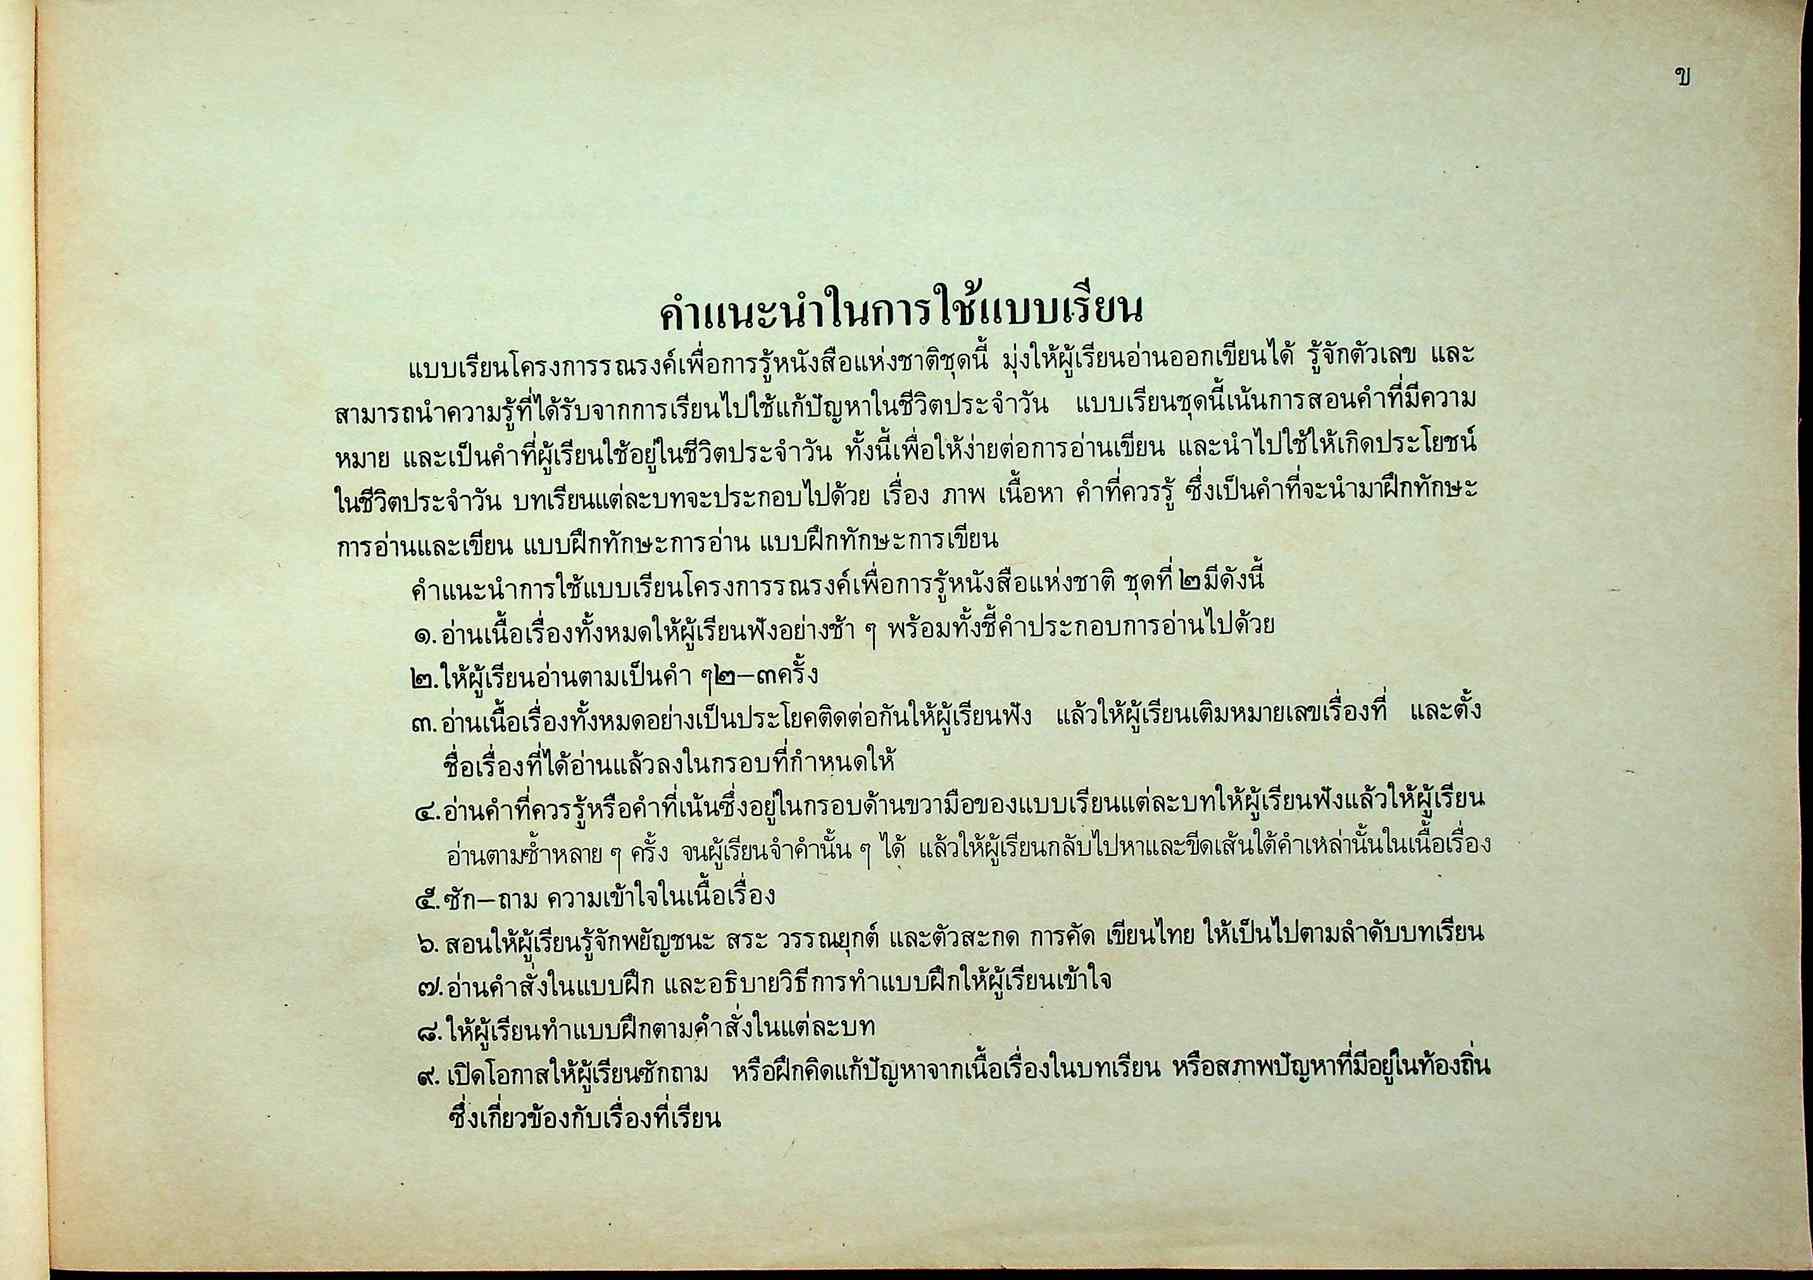 ข
คำแนะนำในการใช้แบบเรียน
แบบเรียนโครงการรณรงค์เพื่อการรู้หนังสือแห่งชาติชุดนี้ มุ่งให้ผู้เรียนอ่านออกเขียนได้ รู้จักตัวเลข และ
สามารถนำความรู้ที่ได้รับจากการเรียนไปใช้แก้ปัญหาในชีวิตประจำวัน แบบเรียนชุดนี้เน้นการสอนคำที่มีความ
หมาย และเป็นคำที่ผู้เรียนใช้อยู่ในชีวิตประจำวัน ทั้งนี้เพื่อให้ง่ายต่อการอ่านเขียน และนำไปใช้ให้เกิดประโยชน์
ในชีวิตประจำวัน บทเรียนแต่ละบทจะประกอบไปด้วย เรื่อง ภาพ เนื้อหา คำที่ควรรู้ ซึ่งเป็นคำที่จะนำมาฝึกทักษะ
การอ่านและเขียน แบบฝึกทักษะการอ่าน แบบฝึกทักษะการเขียน
คำแนะนำการใช้แบบเรียนโครงการรณรงค์เพื่อการรู้หนังสือแห่งชาติ ชุดที่ ๒มีดังนี้
๑. อ่านเนื้อเรื่องทั้งหมดให้ผู้เรียนฟังอย่างช้า ๆ พร้อมทั้งชี้คำประกอบการอ่านไปด้วย
๒.ให้ผู้เรียนอ่านตามเป็นคำ ๆ๒–๓ครั้ง
๓. อ่านเนื้อเรื่องทั้งหมดอย่างเป็นประโยคติดต่อกันให้ผู้เรียนฟัง แล้วให้ผู้เรียนเติมหมายเลขเรื่องที่ และตั้ง
ชื่อเรื่องที่ได้อ่านแล้วลงในกรอบที่กำหนดให้
๔.อ่านคำที่ควรรู้หรือคำที่เน้นซึ่งอยู่ในกรอบด้านขวามือของแบบเรียนแต่ละบทให้ผู้เรียนฟังแล้วให้ผู้เรียน
อ่านตามซ้ำหลาย ๆ ครั้ง จนผู้เรียนจำคำนั้น ๆ ได้ แล้วให้ผู้เรียนกลับไปหาและขีดเส้นใต้คำเหล่านั้นในเนื้อเรื่อง
๕.ซัก–ถาม ความเข้าใจในเนื้อเรื่อง
๖. สอนให้ผู้เรียนรู้จักพยัญชนะ สระ วรรณยุกต์ และตัวสะกด การคัด เขียนไทย ให้เป็นไปตามลำดับบทเรียน
๗.อ่านคำสั่งในแบบฝึก และอธิบายวิธีการทำแบบฝึกให้ผู้เรียนเข้าใจ
๘.ให้ผู้เรียนทำแบบฝึกตามคำสั่งในแต่ละบท
๙. เปิดโอกาสให้ผู้เรียนซักถาม หรือฝึกคิดแก้ปัญหาจากเนื้อเรื่องในบทเรียน หรือสภาพปัญหาที่มีอยู่ในท้องถิ่น
ซึ่งเกี่ยวข้องกับเรื่องที่เรียน